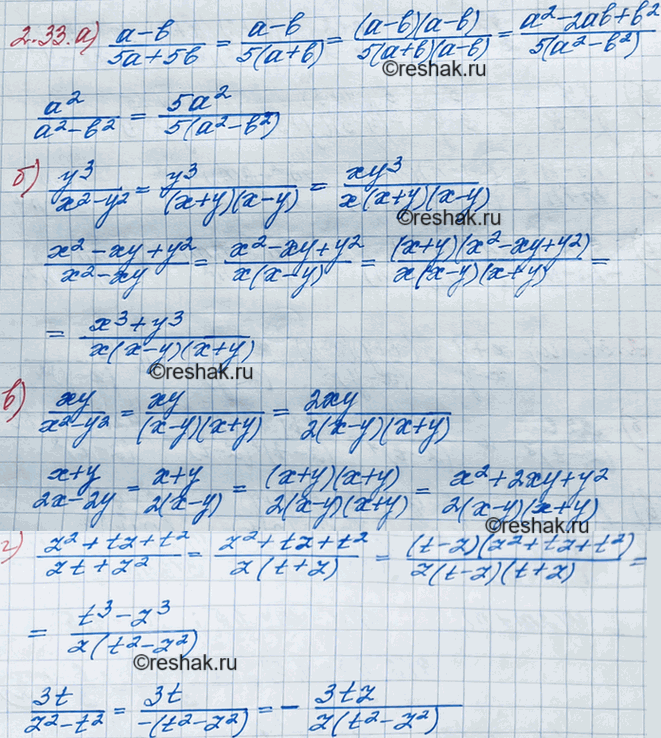 2.33. а) (a-b)/(5a+5b) = (a-b)/(5(a+b)) = ((a-b)(a-b))/(5(a+b)(a-b)) = (a²-2ab+b²)/(5(a²-b²))
©reshak.ru
a²/(a²-b²) = 5a²/(5(a²-b²))
б) y³/(x²-y²) = y³/((x+y)(x-y)) = xy³/(x(x+y)(x-y))
©reshak.ru
(x²-xy+y²)/(x²-xy) = (x²-xy+y²)/(x(x-y)) = ((x+y)(x²-xy+y²))/(x(x-y)(x+y)) =
= (x³+y³)/(x(x-y)(x+y))
©reshak.ru
в) xy/(x²-y²) = xy/((x-y)(x+y)) = 2xy/(2(x-y)(x+y))
(x+y)/(2x-2y) = (x+y)/(2(x-y)) = ((x+y)(x+y))/(2(x-y)(x+y)) = (x²+2xy+y²)/(2(x-y)(x+y))
©reshak.ru
г) (z²+tz+t²)/(zt+z²) = (z²+tz+t²)/(z(t+z)) = ((t-z)(z²+tz+t²))/(z(t-z)(t+z)) =
= (t³-z³)/(z(t²-z²))
©reshak.ru
3t/(z²-t²) = 3t/(-(t²-z²)) = - 3tz/(z(t²-z²))